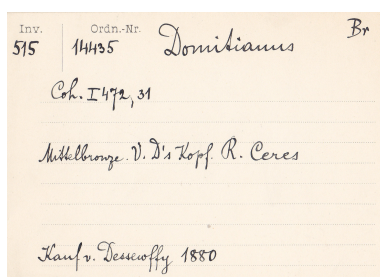 Inv. Ordn.-Nr. Domitianus Br
515 14435
Coh. I 472, 31
Mittelbronze. V. D's Kopf. R. Ceres
Kauf v. Dessewffy 1880